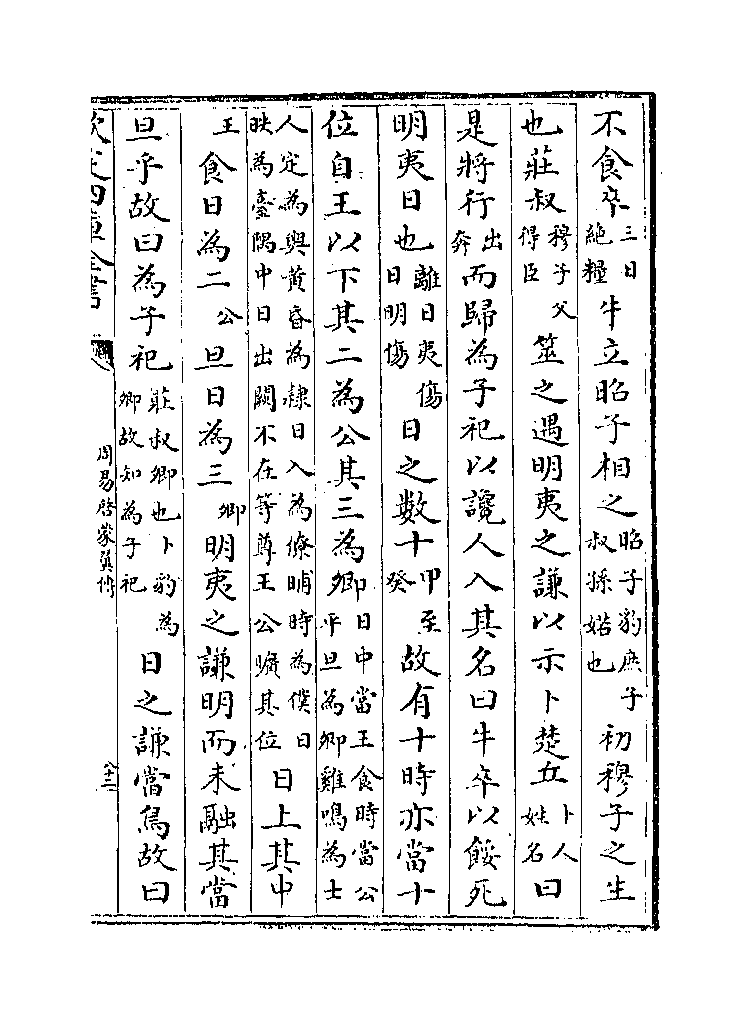 不食卒三日絶糧牛立昭子相之昭子豹庶子叔孫婼也初穆子之生
也莊叔穆子父得臣筮之遇明夷之謙以示卜楚丘卜人姓名曰
是將行出奔而歸為子祀以讒人入其名曰牛卒以餒死
明夷日也離日夷傷日明傷日之數十甲至癸故有十時亦當十
位自王以下其二為公其三為卿日中當王食時當公平旦為卿雞鳴為士
人定為輿黄昏為隸日入為僚晡時為僕日昳為臺隅中日出闕不在等尊王公曠其位日上其中
王食日為二公旦日為三卿明夷之謙明而未融其當
旦乎故曰為子祀莊叔卿也卜豹為卿故知為子祀日之謙當鳥故曰
欽定四庫全書
周易啓蒙翼傳